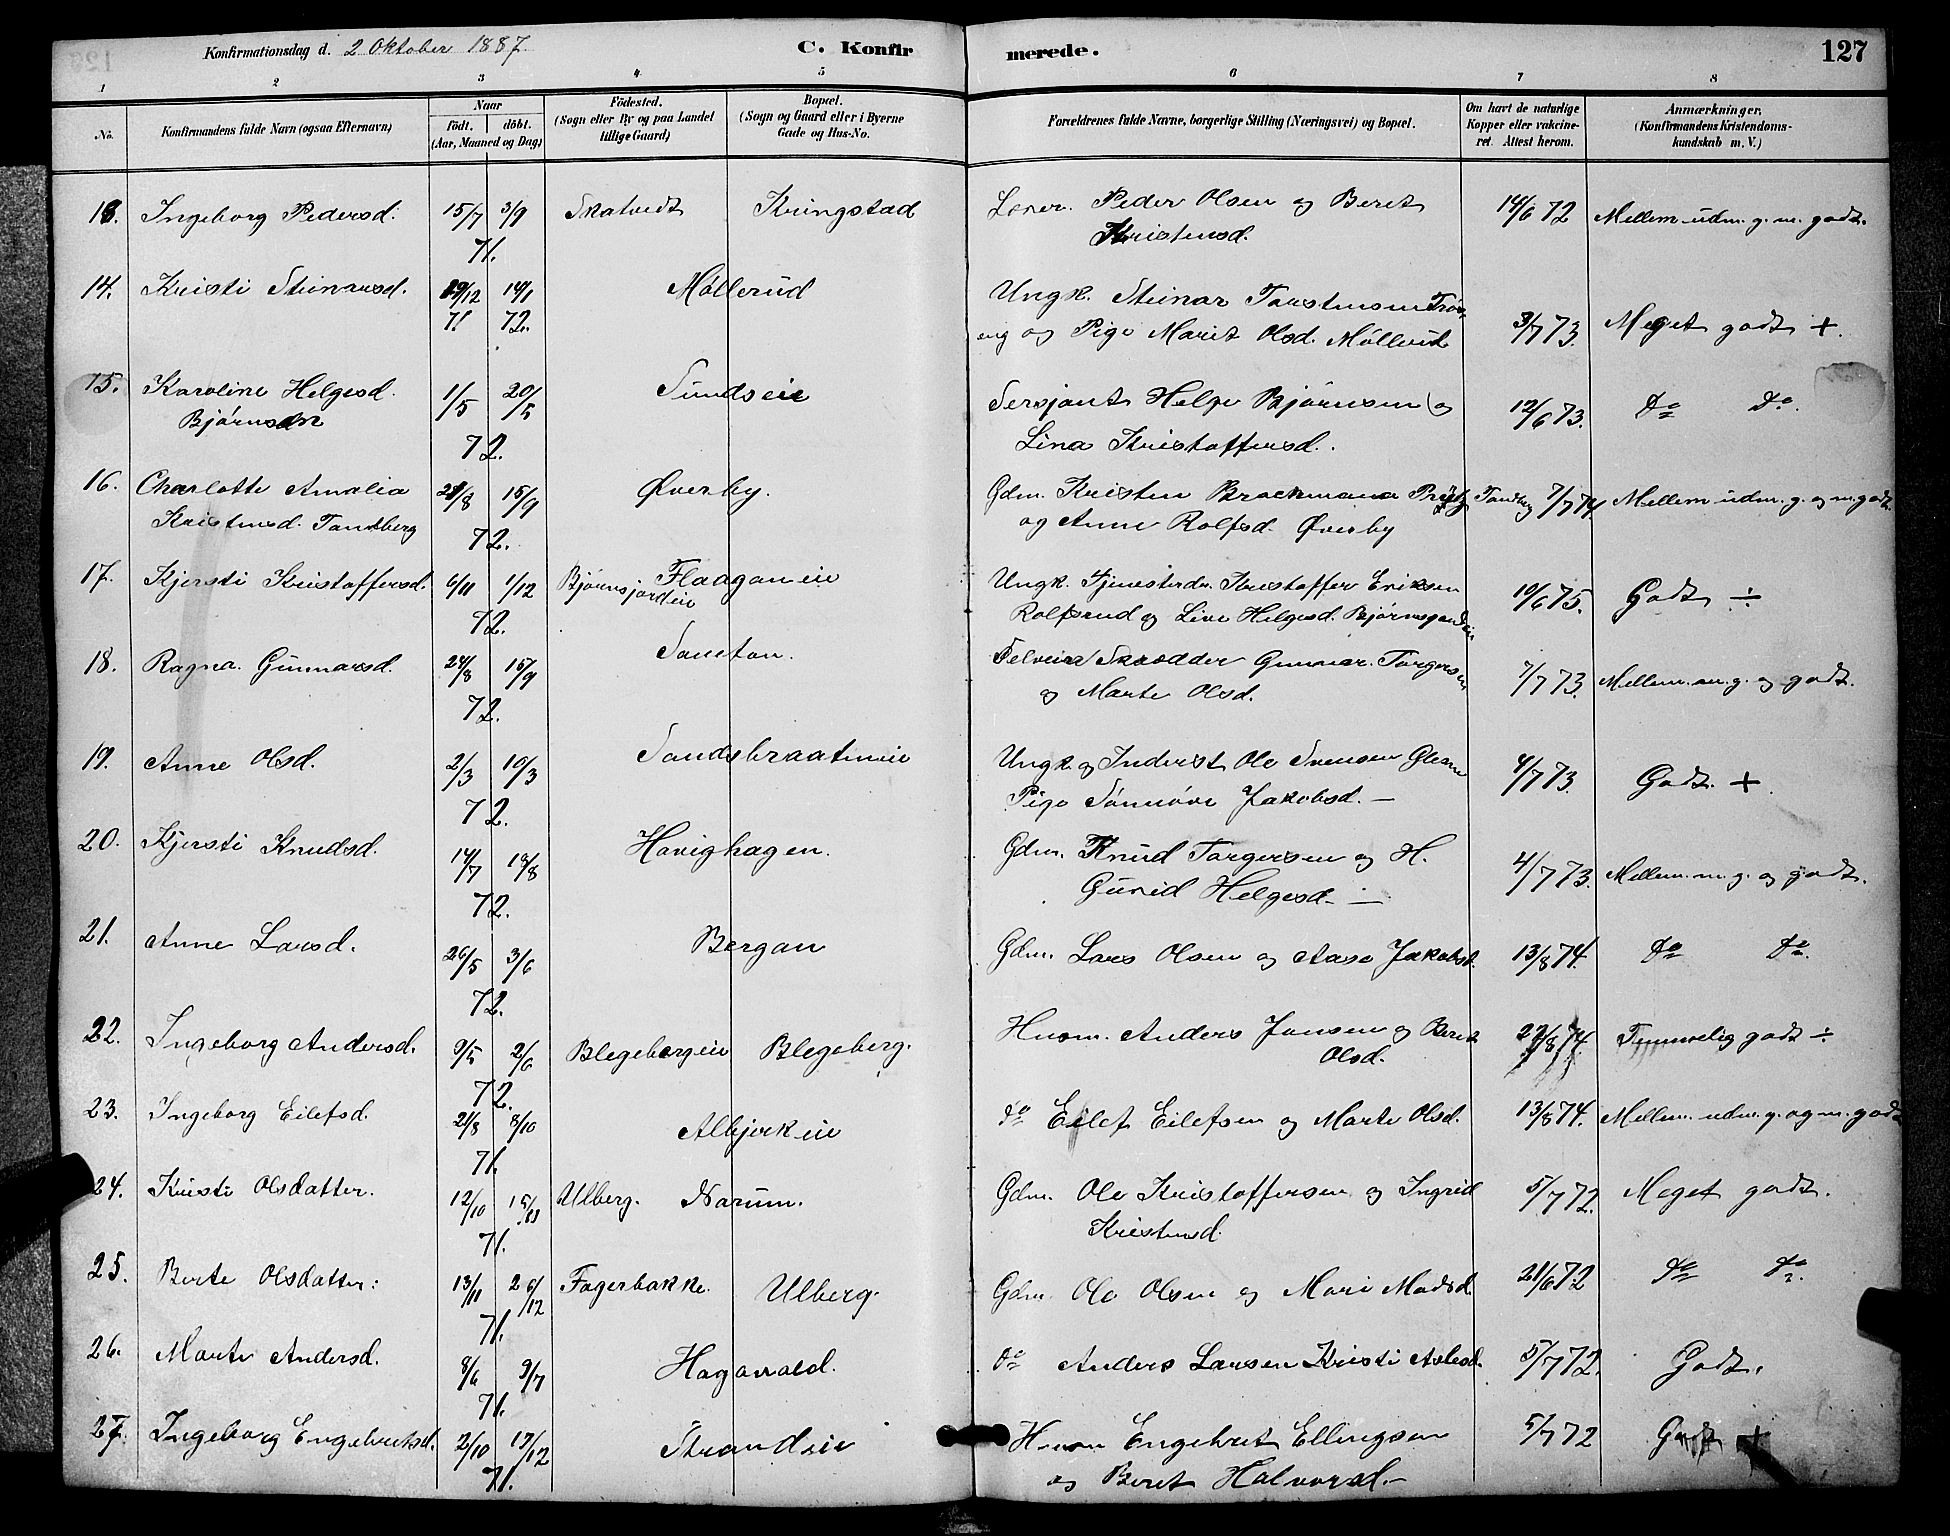 Konfirmationsdag d. 2 Oktober 1887. C. Konfirmerede. 127
1 2 3 4 5 6 7 8
No. Konfirmandens fulde Navn (ogsaa Efternavn) Naar födt. döbt. (Aar, Maaned og Dag) Födested. (Sogn eller By og paa Landet tillige Gaard) Bopæl. (Sogn og Gaard eller i Byerne Gade og Hus-No. Forældrenes fulde Navne, borgerlige Stilling (Næringsvei) og Bopæl. Om havt de naturlige Kopper eller vakcineret. Attest herom. Anmærkninger, (Konfirmandens Kristendomskundskab m. V.)
13. Ingeborg Pedersd. 15/7 3/9 Skatvedt Kringstad Peder Olsen og Beret 14/6 72 Mellem udm. g. m. godt.
71. Kristensd.
14. Kristi Steinarsd. 29/12 14/1 Møllerud Ungk. Steinar Torstensen
71. 72. og Pige Marit Olsd. Møllerud 3/7 73. Meget godt +.
15. Karoline Helgesd. 1/5 20/5 Sundseie Sersjant Helge Bjørnsen og 12/6 73. do do.
Bjørnsen 72. Lina Kristoffersd.
16. Charlotte Amalia 28/8 15/9 Øverby. Gdm. Kristen Brockmann Prytz Tandberg 7/7 74. Mellem udm. g. og m. godt.
Kristensd. Tandberg 72. og Anne Rolfsd. Øverby
17. Kjersti Kristoffersd. 6/11 1/12 Bjørnsjordeie Flaaganeie Ungk. Tjenestedr. Kristoffer Eriksen 10/6 75. Godt ÷
72. Rolfsrud og Live Helgesd. Bjørnsjordeie
18. Ragna Gunnarsd. 24/8 15/9 Selveier Skrædder Gunnar Torgersen 7/7 73. Mellem m. g. og godt.
72. og Marte Olsd.
19. Anne Olsd. 2/3 10/3 Sandsbraateneie Ungk. og Inderst Ole Svensen 4/7 73. Godt. +.
72. Pige Sønnøve Jakobsd. —
20. Kjersti Knudsd. 14/7 18/8 Havighagen. Gdm. Knud Torgersen og H. 4/7 73. Mellem m. g. og godt.
72. Gunild Helgesd. —
21. Anne Larsd. 26/5 3/6 Bergan Gdm. Lars Olsen og Aase Jakobsd. 13/8 74. do do.
72.
22. Ingeborg Andersd. 9/5 2/6 Blegebergeie Blegeberg. Husm. Anders Jansen og Beret 22/8 74. Temmelig godt ÷
72. Olsd.
23. Ingeborg Eilefsd. 21/8 8/10 Albjerkeie do Eilef Eilefsen og Marte Olsd. 13/8 74. Mellem udm. g. og m. godt
71.
24. Kristi Olsdatter. 12/10 Ulberg. Narum. Gdm. Ole Kristoffersen og Ingrid 5/7 72. Meget godt.
71. Kristensd.
25. Berte Olsdatter: 13/11 26/12 Fagerbakke. Ulberg. Gdm. Ole Olsen og Mari Madsd. 21/6 72 do do.
71.
26. Marte Andersd. 8/6 9/7 do Anders Larsen Kristi 5/7 72. Godt.
71.
27. Ingeborg Engebretsd. 2/10 17/12 Strandeie Husm Engebret Ellingsen 5/7 72 Godt +
71. og Beret Halvorsd. —